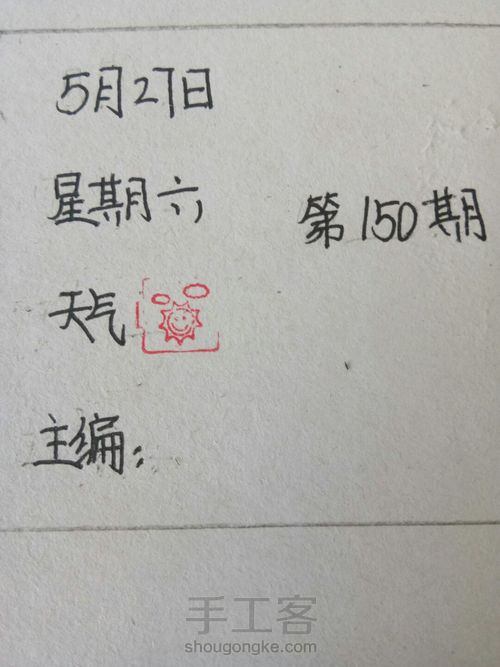 5月27日
星期六
第150期
天气
主编:
手工客
shougongke.com